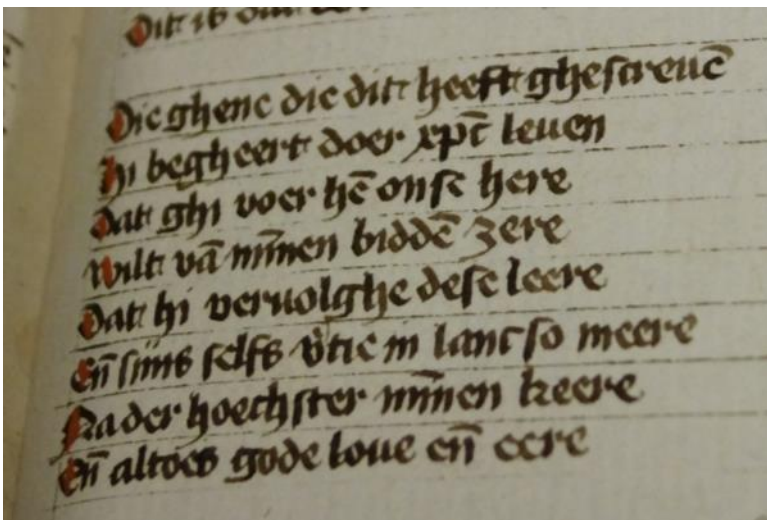 Dit is
Die ghene die dit heeft ghescreuē
Hi begheert doer xp̄c leuen
Dat ghi voer hē onse here
Wilt vā mīnen biddē zere
Dat hi veruolghe dese leere
En̄ sijns selfs v̄tie in lanc so meere
Na der hoechster mīnen keere
En̄ altoes gode loue en̄ eere